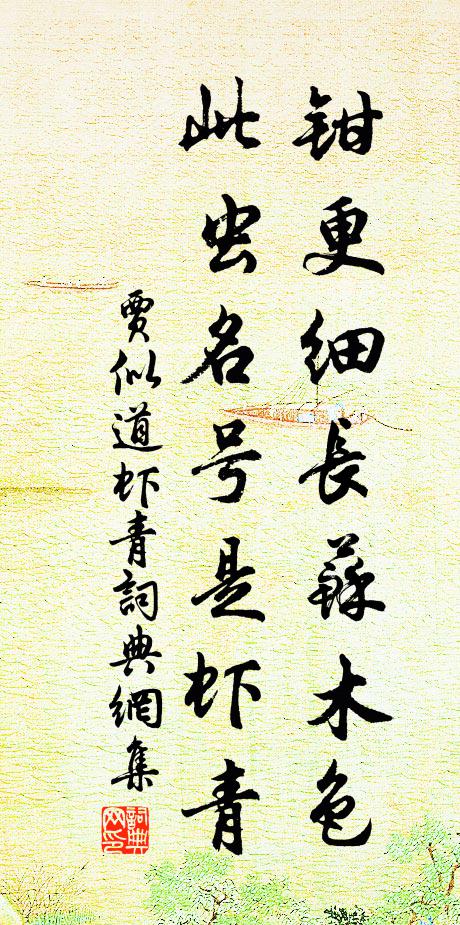 钳更细長蘇木色
此虫名号是虾青
賈似道虾青詞典網集
詞典网印